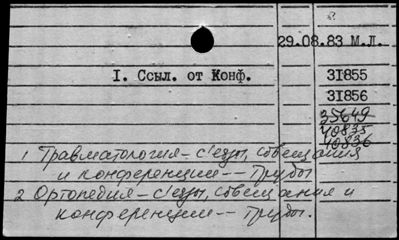 29.08.83 М.Л.
I. Ссыл. от Конф.
31855
31856
35649
40835
40836
1 Травматология – с'езды, совещания
и конференции -- Труды
2 Ортопедия – с'езды, совещания и
конференции -- Труды.